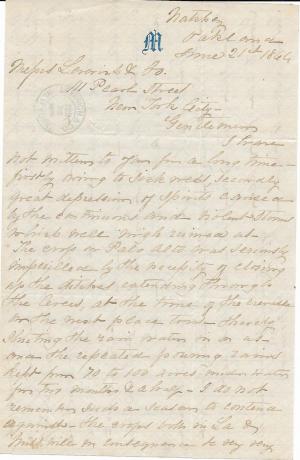 M
Natchez
Oakland
June 21st 18
Messrs & Co.
111 Pearl Street
New York City
Gentlemen
I have
not written to you for a long time
firstly owing to sickness, secondly
great depression of spirits caused
by the continuous and violent storms
which well nigh ruined us
The crop on Palo Alto was seriously
imperilled by the necessity of closing
up the ditches extending through
the levees at the time of the
in the next place thereby
shutting the rain water in on us
and the repeated pouring rains
kept from 70 to 100 acres under water
for two months & a half - I do not
remember such a season to contend
against. The crops both in La &
Miss will in consequence be very very